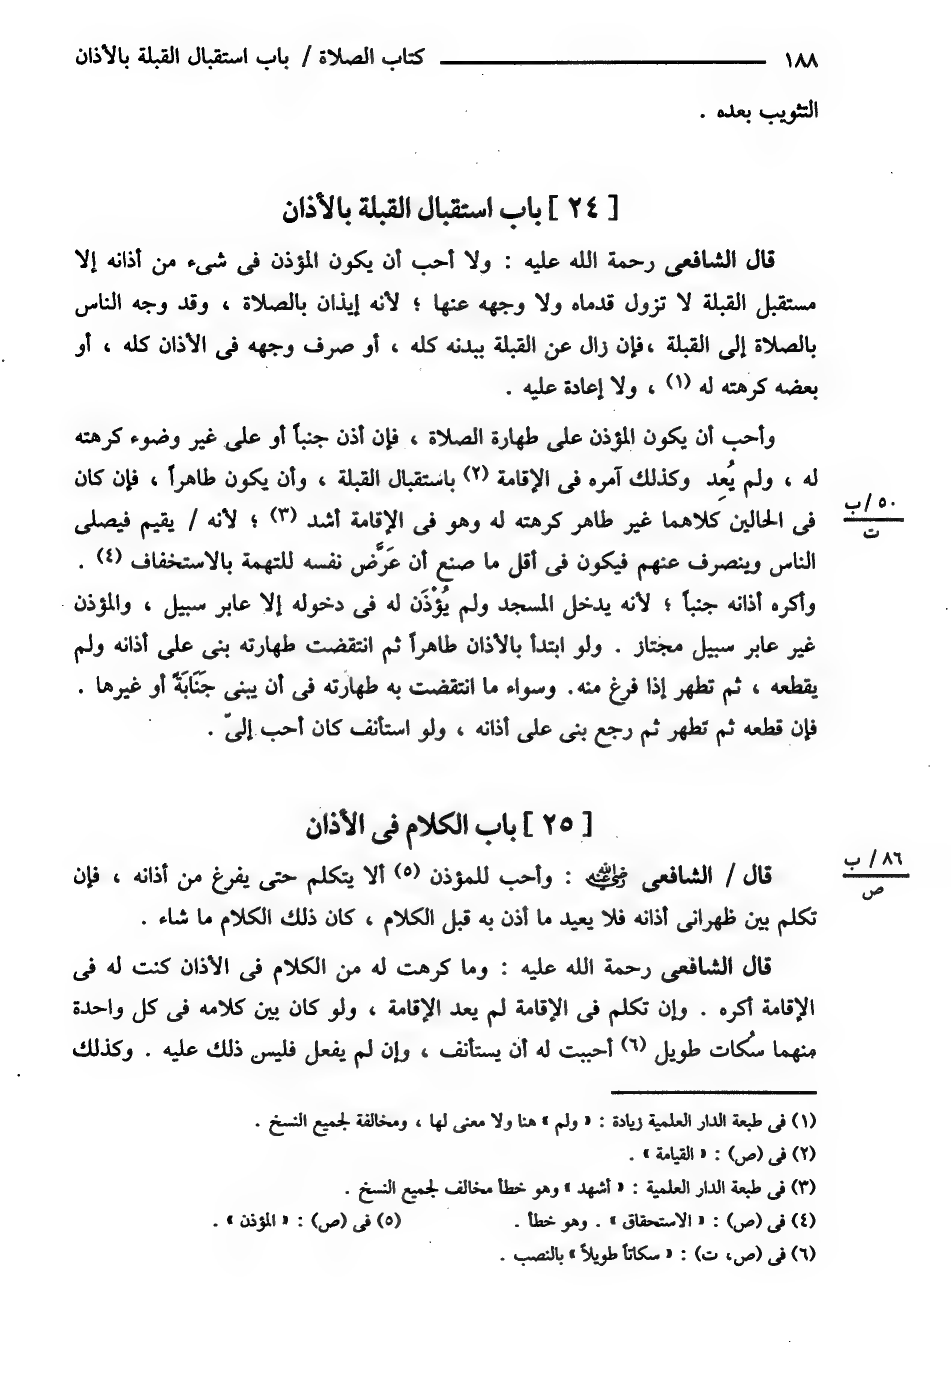 ١٨٨ كتاب الصلاة / باب استقبال القبلة بالأذان
التثويب بعده .
[ ٢٤ ] باب استقبال القبلة بالأذان
قال الشافعى رحمة الله عليه : ولا أحب أن يكون المؤذن فى شىء من أذانه إلا
مستقبل القبلة لا تزول قدماه ولا وجهه عنها ؛ لأنه إيذان بالصلاة ، وقد وجه الناس
بالصلاة إلى القبلة ،فإن زال عن القبلة ببدنه كله ، أو صرف وجهه فى الأذان كله ، أو
بعضه كرهته له (١) ، ولا إعادة عليه .
وأحب أن يكون المؤذن على طهارة الصلاة ، فإن أذن جنباً أو على غير وضوء كرهته
له ، ولم يُعِد وكذلك آمره فى الإقامة (٢) باستقبال القبلة ، وأن يكون طاهراً ، فإن كان
٥٠ /ب
فى الحالين كلاهما غير طاهر كرهته له وهو فى الإقامة أشد (٣) ؛ لأنه / يقيم فيصلى
ت
الناس وينصرف عنهم فيكون فى أقل ما صنع أن عَرَّض نفسه للتهمة بالاستخفاف (٤) .
وأكره أذانه جنباً ؛ لأنه يدخل المسجد ولم يُؤْذَن له فى دخوله إلا عابر سبيل ، والمؤذن
غير عابر سبيل مجتاز . ولو ابتدأ بالأذان طاهراً ثم انتقضت طهارته بنى على أذانه ولم
يقطعه ، ثم تطهر إذا فرغ منه. وسواء ما انتقضت به طهارته فى أن يبنى جَنَابَةً أو غيرها .
فإن قطعه ثم تطهر ثم رجع بنى على أذانه ، ولو استأنف كان أحب إلىّ .
[ ٢٥ ] باب الكلام فى الأذان
٨٦ / ب
قال / الشافعى رضي الله عنه : وأحب للمؤذن (٥) ألا يتكلم حتى يفرغ من أذانه ، فإن
ص
تكلم بين ظهرانى أذانه فلا يعيد ما أذن به قبل الكلام ، كان ذلك الكلام ما شاء .
قال الشافعى رحمة الله عليه : وما كرهت له من الكلام فى الأذان كنت له فى
الإقامة أكره . وإن تكلم فى الإقامة لم يعد الإقامة ، ولو كان بين كلامه فى كل واحدة
منهما سُكات طويل (٦) أحببت له أن يستأنف ، وإن لم يفعل فليس ذلك عليه . وكذلك
(١) فى طبعة الدار العلمية زيادة : « ولم » هنا ولا معنى لها ، ومخالفة لجميع النسخ .
(٢) فى (ص) : « القيامة » .
(٣) فى طبعة الدار العلمية : « أشهد » وهو خطأ مخالف لجميع النسخ .
(٤) فى (ص) : « الاستحقاق » . وهو خطأ . (٥) فى (ص) : « المؤذن » .
(٦) فى (ص، ت) : « سكاتاً طويلاً » بالنصب .